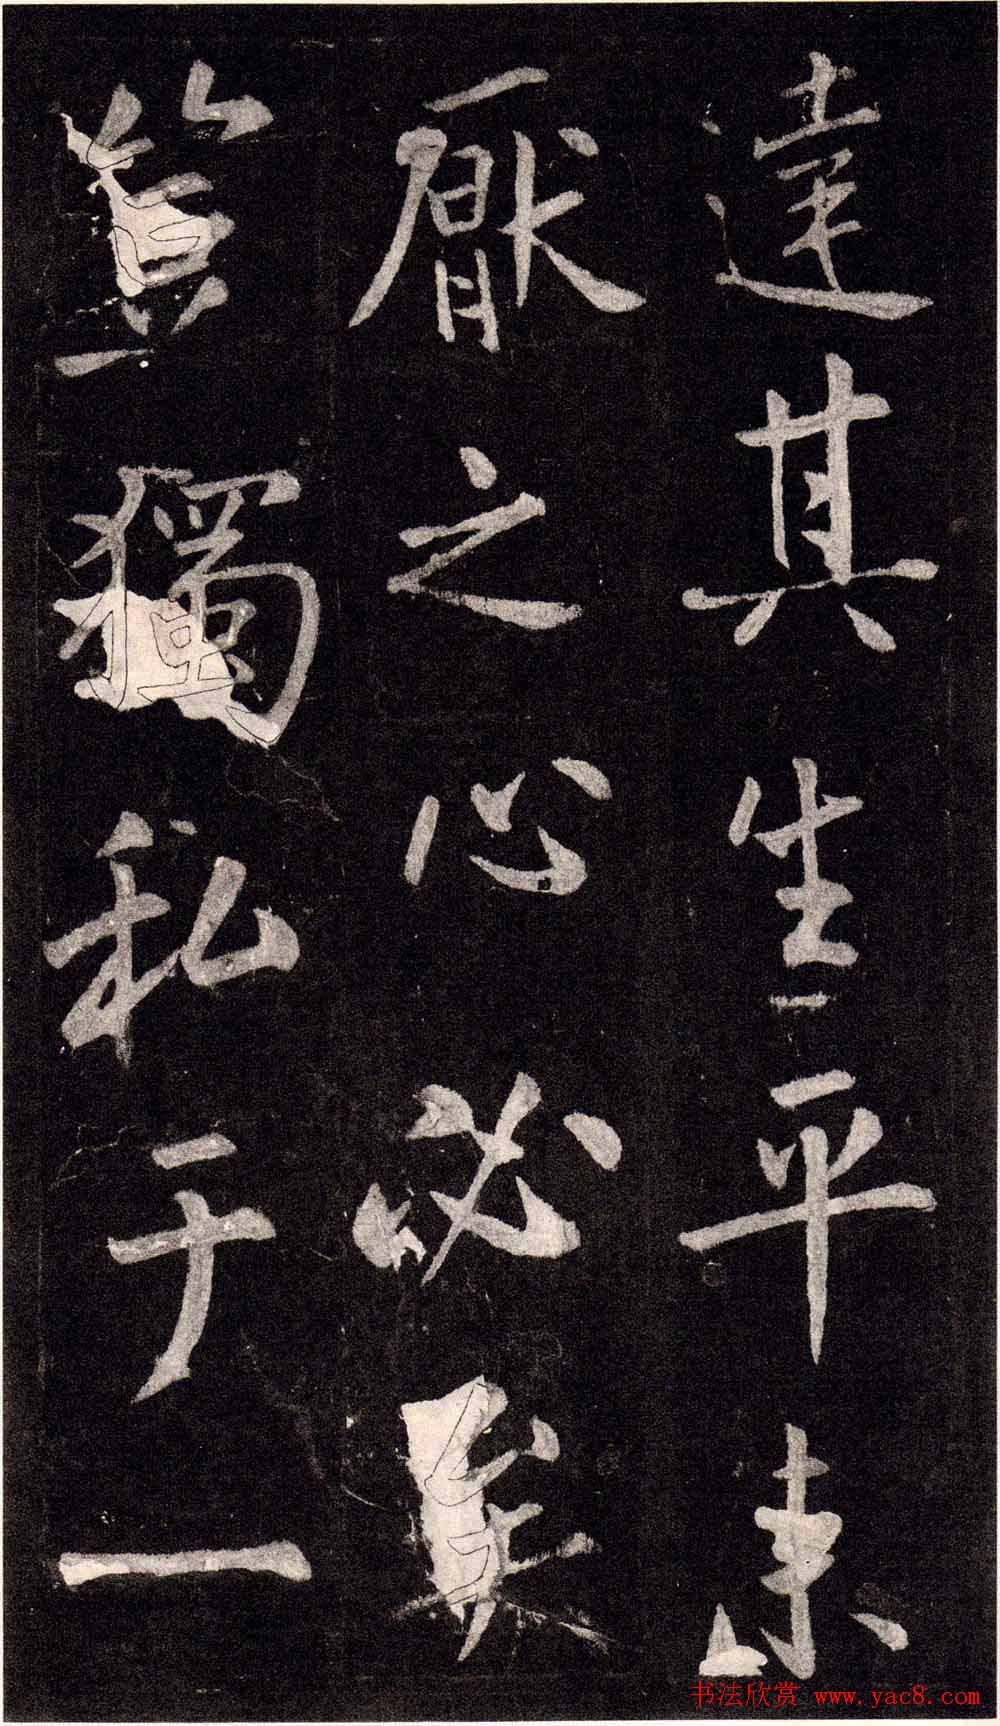 達其生平未
厭之心必矣
豈獨私于一
书法欣赏 www.yac8.com